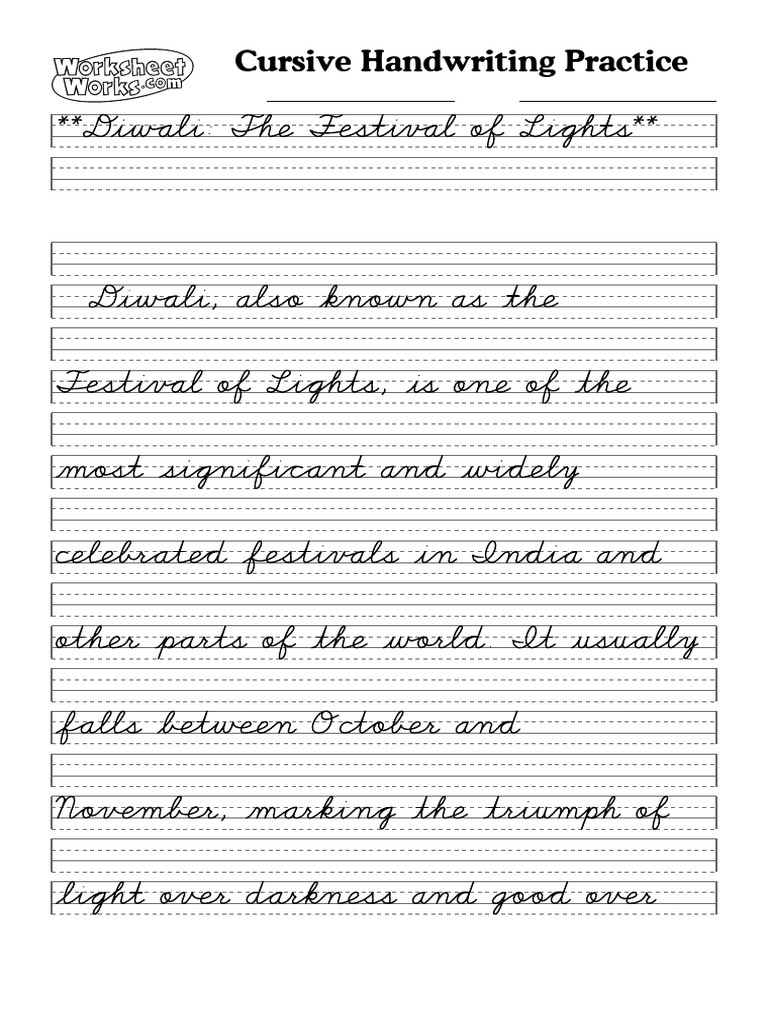 Worksheet
Works.com
Cursive Handwriting Practice
**Diwali: The Festival of Lights**
Diwali, also known as the
Festival of Lights, is one of the
most significant and widely
celebrated festivals in India and
other parts of the world. It usually
falls between October and
November, marking the triumph of
light over darkness and good over